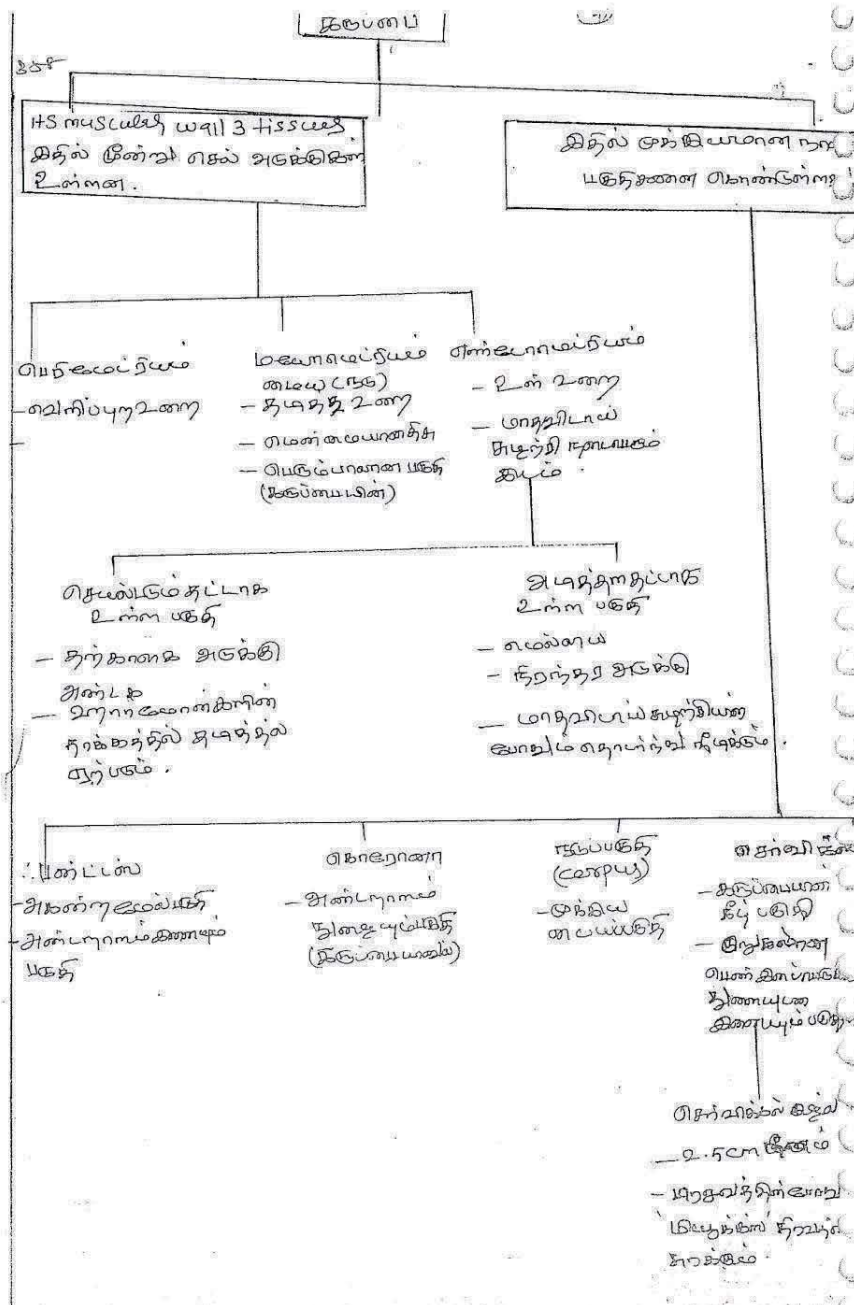 கருப்பை
Its muscular wall 3 tissues
இதில் மூன்று செல் அடுக்குகள்
உள்ளன.
இதில் முக்கியமான
பகுதிகளை
பெரிமேட்ரியம்
- வெளிப்புற உறை
-
மயோமெட்ரியம்
மைய (நடு)
- தடித்த உறை
- மென்மையான திசு
- பெரும்பாலான பகுதி
(கருப்பையின்)
எண்டோமெட்ரியம்
- உள் உறை
- மாதவிடாய்
சுழற்சி நடைபெறும்
இடம்.
செயல்படும் தட்டாக
உள்ள பகுதி
- தற்காலிக அடுக்கு
அண்டக
- ஹார்மோன்களின்
தாக்கத்தில் தடித்தல்
ஏற்படும்.
அடித்தள தட்டாக
உள்ள பகுதி
- மெல்லிய
- நிரந்தர அடுக்கு
- மாதவிடாய் சுழற்சியின்
போதும் தொடர்ந்து நீடிக்கும்.
ஃபண்டஸ்
- அகன்ற மேல்பகுதி
- அண்டநாளம் இணையும்
பகுதி
கொரோனா
- அண்டநாளம்
நுழையும் பகுதி
(கருப்பையினுள்)
நடுப்பகுதி
(corpus)
- முக்கிய
மையப்பகுதி
- கருப்பையின்
கீழ் பகுதி
- குறுகலான
பெண்
துணையுடன்
இணையும் பகுதி
செர்விக்கல்
- 2.5cm நீளம்
- பிரசவத்தின் போது
மியூக்கஸ் திரவத்தை
சுரக்கும்.